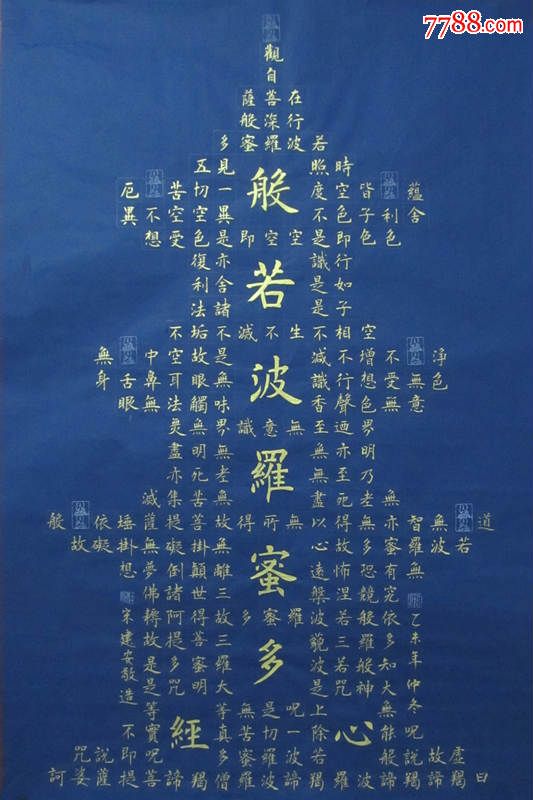 觀
自
在菩薩
行深般
若波羅蜜多
時照見五
蘊皆空度一切苦厄
舍利子色不異空空不異
色色即是空空即是色受想
行識亦復
如是舍利
子是諸法
空相不生不滅不垢不
淨不增不減是故空中無
色無受想行識無眼耳鼻舌身
意無色聲香味觸法無眼
界迺至無意識界無
明亦無無明盡
乃至無老死亦
無老死盡無苦集滅
道無智亦無得以無所得故菩提薩埵依般
若波羅蜜多故心無掛礙無掛礙故
無有恐怖遠離顛倒夢想
定競涅槃三世諸佛
依般若波羅蜜多故得阿
多羅三藐三菩提故
知般若波羅蜜多是
大神咒是大明咒是
無上呪是無等等
能除一切苦真實不
虛故說般若波羅蜜多呪即說咒
曰羯諦羯諦波羅羯諦波羅僧羯諦菩提薩婆訶
般若波羅蜜多
心經
乙未年仲冬
宋建安敬造
7788.com